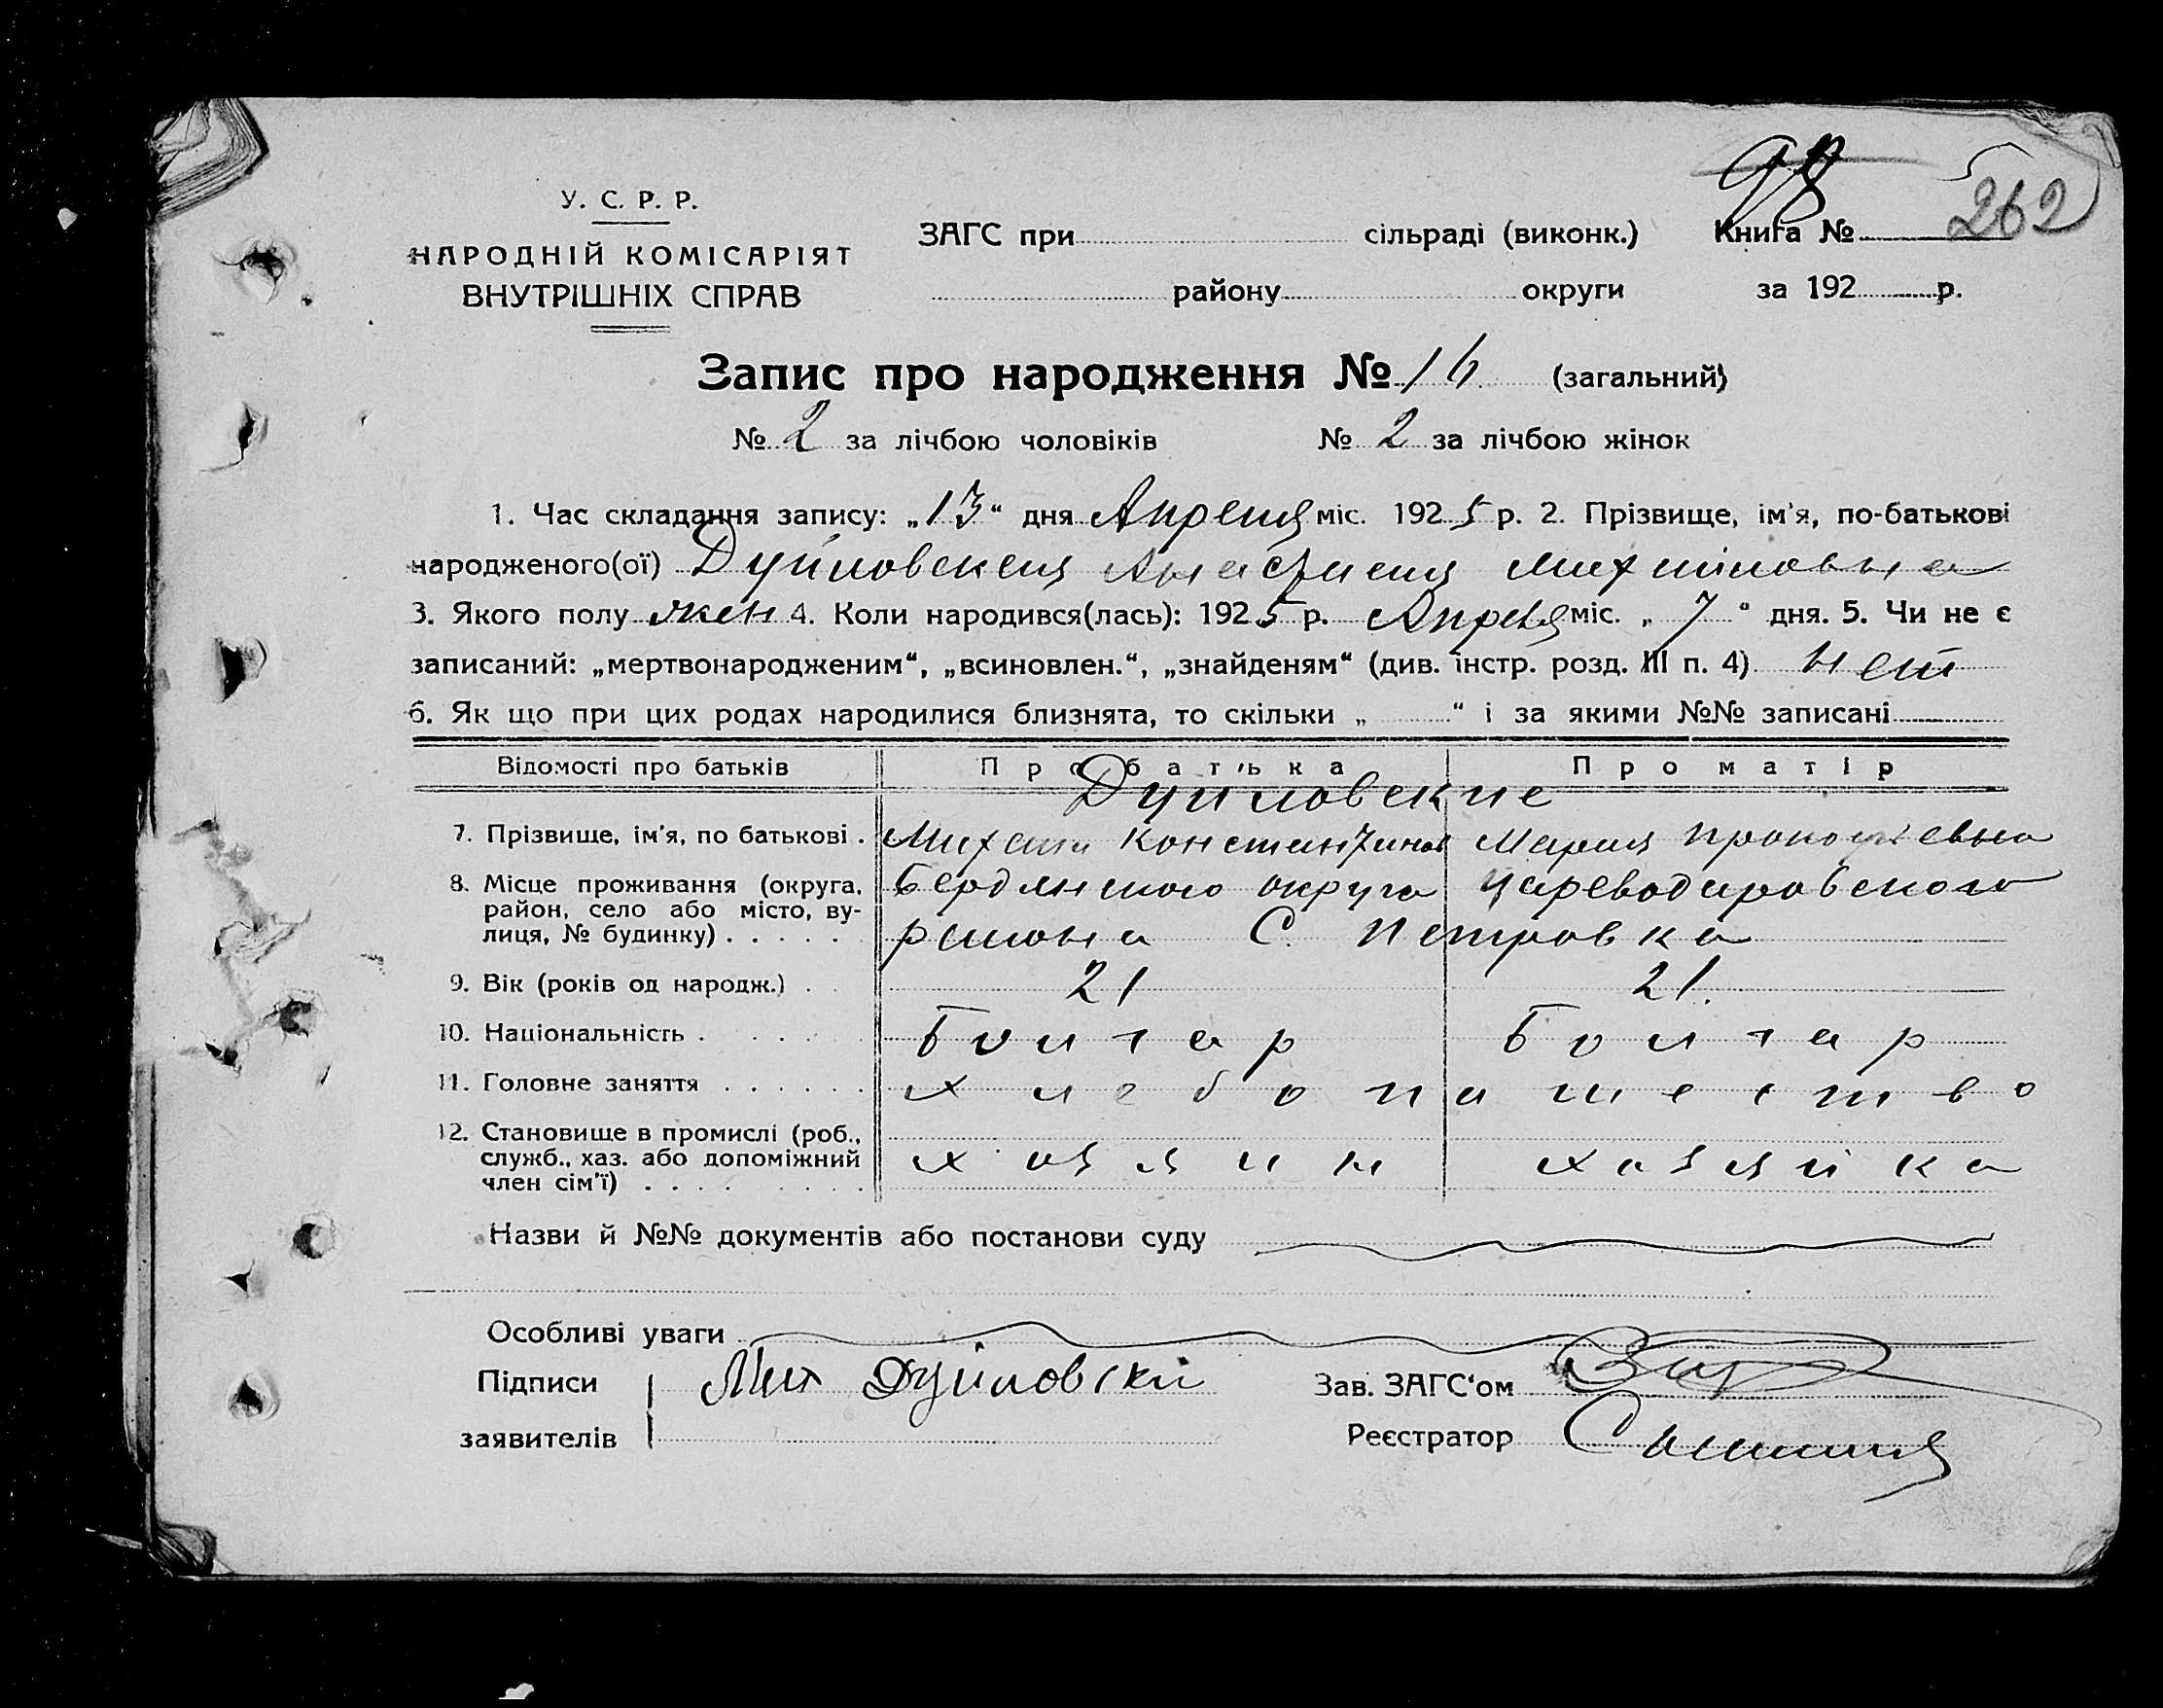 98
262
У. С. Р. Р.
НАРОДНІЙ КОМІСАРІЯТ
ВНУТРІШНІХ СПРАВ
ЗАГС при сільраді (виконк.) Книга №
району округи за 192 р.
Запис про народження № 16 (загальний)
№ 2 за лічбою чоловіків № 2 за лічбою жінок
1. Час складання запису: „13“ дня Апреля міс. 1925 р. 2. Прізвище, ім'я, по-батькові
народженого(ої) Дуйловская Анастисия Михайловна
3. Якого полу жен 4. Коли народився(лась): 1925 р. Апреля міс. „7“ дня. 5. Чи не є
записаний: „мертвонародженим“, „всиновлен.“, „знайденям“ (див. інстр. розд. III п. 4) нет
6. Як що при цих родах народилися близнята, то скільки „ “ і за якими №№ записані
Відомості про батьків Про батька Про матір
Дуйловские
7. Прізвище, ім'я, по батькові . Михаил Константинов Мария
8. Місце проживання (округа, район, село або місто, вулиця, № будинку) . . . . . Бердянского округа Цареводаровского
района С. Петровка
9. Вік (років од народж.) . . 21 21.
10. Національність . . . . . Болгар Болгар
11. Головне заняття . . . . . . хлебопашество
12. Становище в промислі (роб., служб., хаз. або допоміжний член сім'ї) . . . . . . . . хозяин хазяйка
Назви й №№ документів або постанови суду
Особливі уваги
Підписи Мих Дуйловски Зав. ЗАГС'ом
заявителів Реєстратор